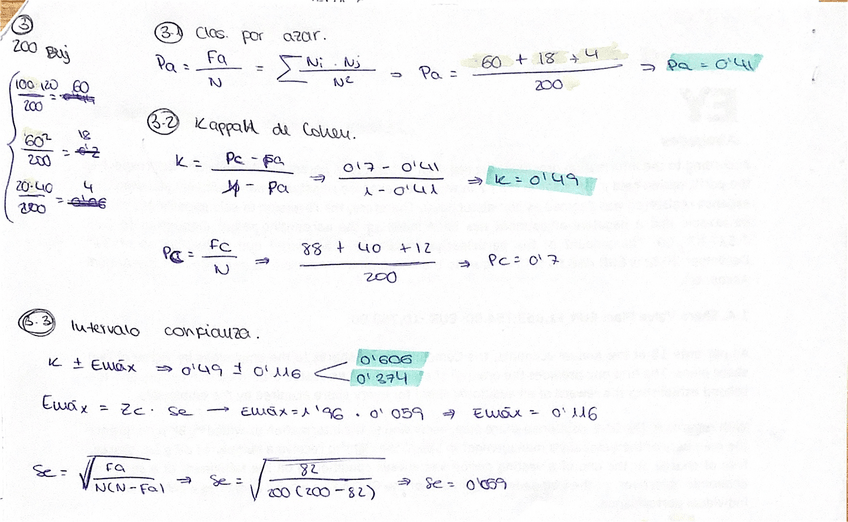 3
200 Suj
100·120 / 200 = 60
60² / 200 = 18
20·40 / 200 = 4
3.1 Clas. por azar.
Pa = Fa / N = Σ Ni · Nj / N² ⇒ Pa = 60 + 18 + 4 / 200 ⇒ Pa = 0'41
3.2 Kappah de Cohen.
K = Pc - Pa / 1 - Pa ⇒ 0'7 - 0'41 / 1 - 0'41 ⇒ K = 0'49
Pc = Fc / N ⇒ 88 + 40 + 12 / 200 ⇒ Pc = 0'7
3.3 Intervalo confianza.
K ± Emáx ⇒ 0'49 ± 0'116 < 0'606
0'374
Emáx = Zc · Se → Emáx = 1'96 · 0'059 ⇒ Emáx = 0'116
Se = √ Fa / N(N - Fa) ⇒ Se = √ 82 / 200(200 - 82) ⇒ Se = 0'059